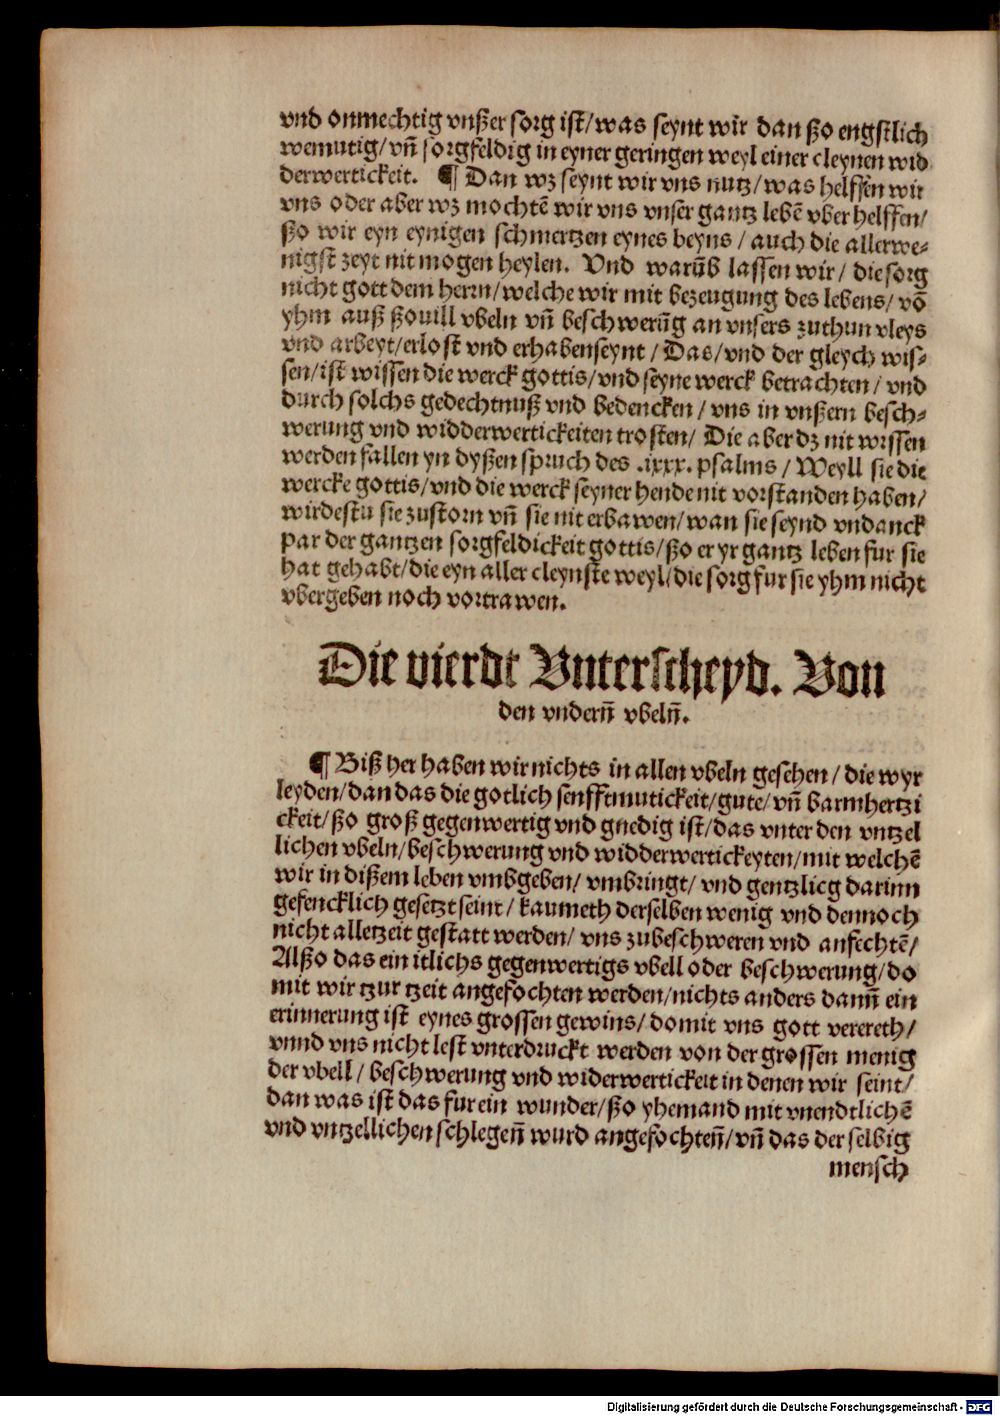 vnd onmechtig vnßer sorg ist/was seynt wir dan ßo engstlich
wemutig/vn̄ sorgfeldig in eyner geringen weyl einer cleynen wid
derwertickeit. ¶ Dan wz seynt wir vns nutz/was helffen wir
vns oder aber wz mochtē wir vns vnser gantz lebē vber helffen/
ßo wir eyn eynigen schmertzen eynes beyns/auch die allerwe⸗
nigst zeyt nit mogen heylen. Vnd warūb lassen wir/die sorg
nicht gott dem herrn/welche wir mit bezeugung des lebens/vō
yhm auß ßouill vbeln vn̄ beschwerūg an vnsers zuthun vleys
vnd arbeyt/erlost vnd erhabenseynt/Das/vnd der gleych wis⸗
sen/ist wissen die werck gottis/vnd seyne werck betrachten/vnd
durch solchs gedechtnuß vnd bedencken/vns in vnßern besch⸗
werung vnd widderwertickeiten trosten/Die aber dz nit wissen
werden fallen yn dyßen spruch des .ixxx. psalms/Weyll sie die
wercke gottis/vnd die werck seyner hende nit vorstanden haben/
wirdestu sie zustorn vn̄ sie nit erbawen/wan sie seynd vndanck
par der gantzen sorgfeldickeit gottis/ßo er yr gantz leben fur sie
hat gehabt/die eyn aller cleynste weyl/die sorg fur sie yhm nicht
vbergeben noch vortrawen.
Die vierdt Vnterscheyd. Von
den vndern̄ vbeln̄.
¶ Biß her haben wir nichts in allen vbeln gesehen/die wyr
leyden/dan das die gotlich senfftmutickeit/gute/vn̄ barmhertzi
ckeit/ßo groß gegenwertig vnd gnedig ist/das vnter den vntzel
lichen vbeln/beschwerung vnd widderwertickeyten/mit welchē
wir in dißem leben vmbgeben/vmbringt/vnd gentzlicg darinn
gefencklich gesetzt seint/kaumeth derselben wenig vnd dennoch
nicht alletzeit gestatt werden/vns zubeschweren vnd anfechtē/
Alßo das ein itlichs gegenwertigs vbell oder beschwerung/do
mit wir tzur tzeit angefochten werden/nichts anders dann̄ ein
erinnerung ist eynes grossen gewins/domit vns gott verereth/
vnnd vns nicht lest vnterdruckt werden von der grossen menig
der vbell/beschwerung vnd widerwertickeit in denen wir seint/
dan was ist das fur ein wunder/ßo yhemand mit vnendtlichē
vnd vntzellichen schlegen̄ wurd angefochten̄/vn̄ das der selbig
mensch
Digitalisierung gefördert durch die Deutsche Forschungsgemeinschaft - DFG